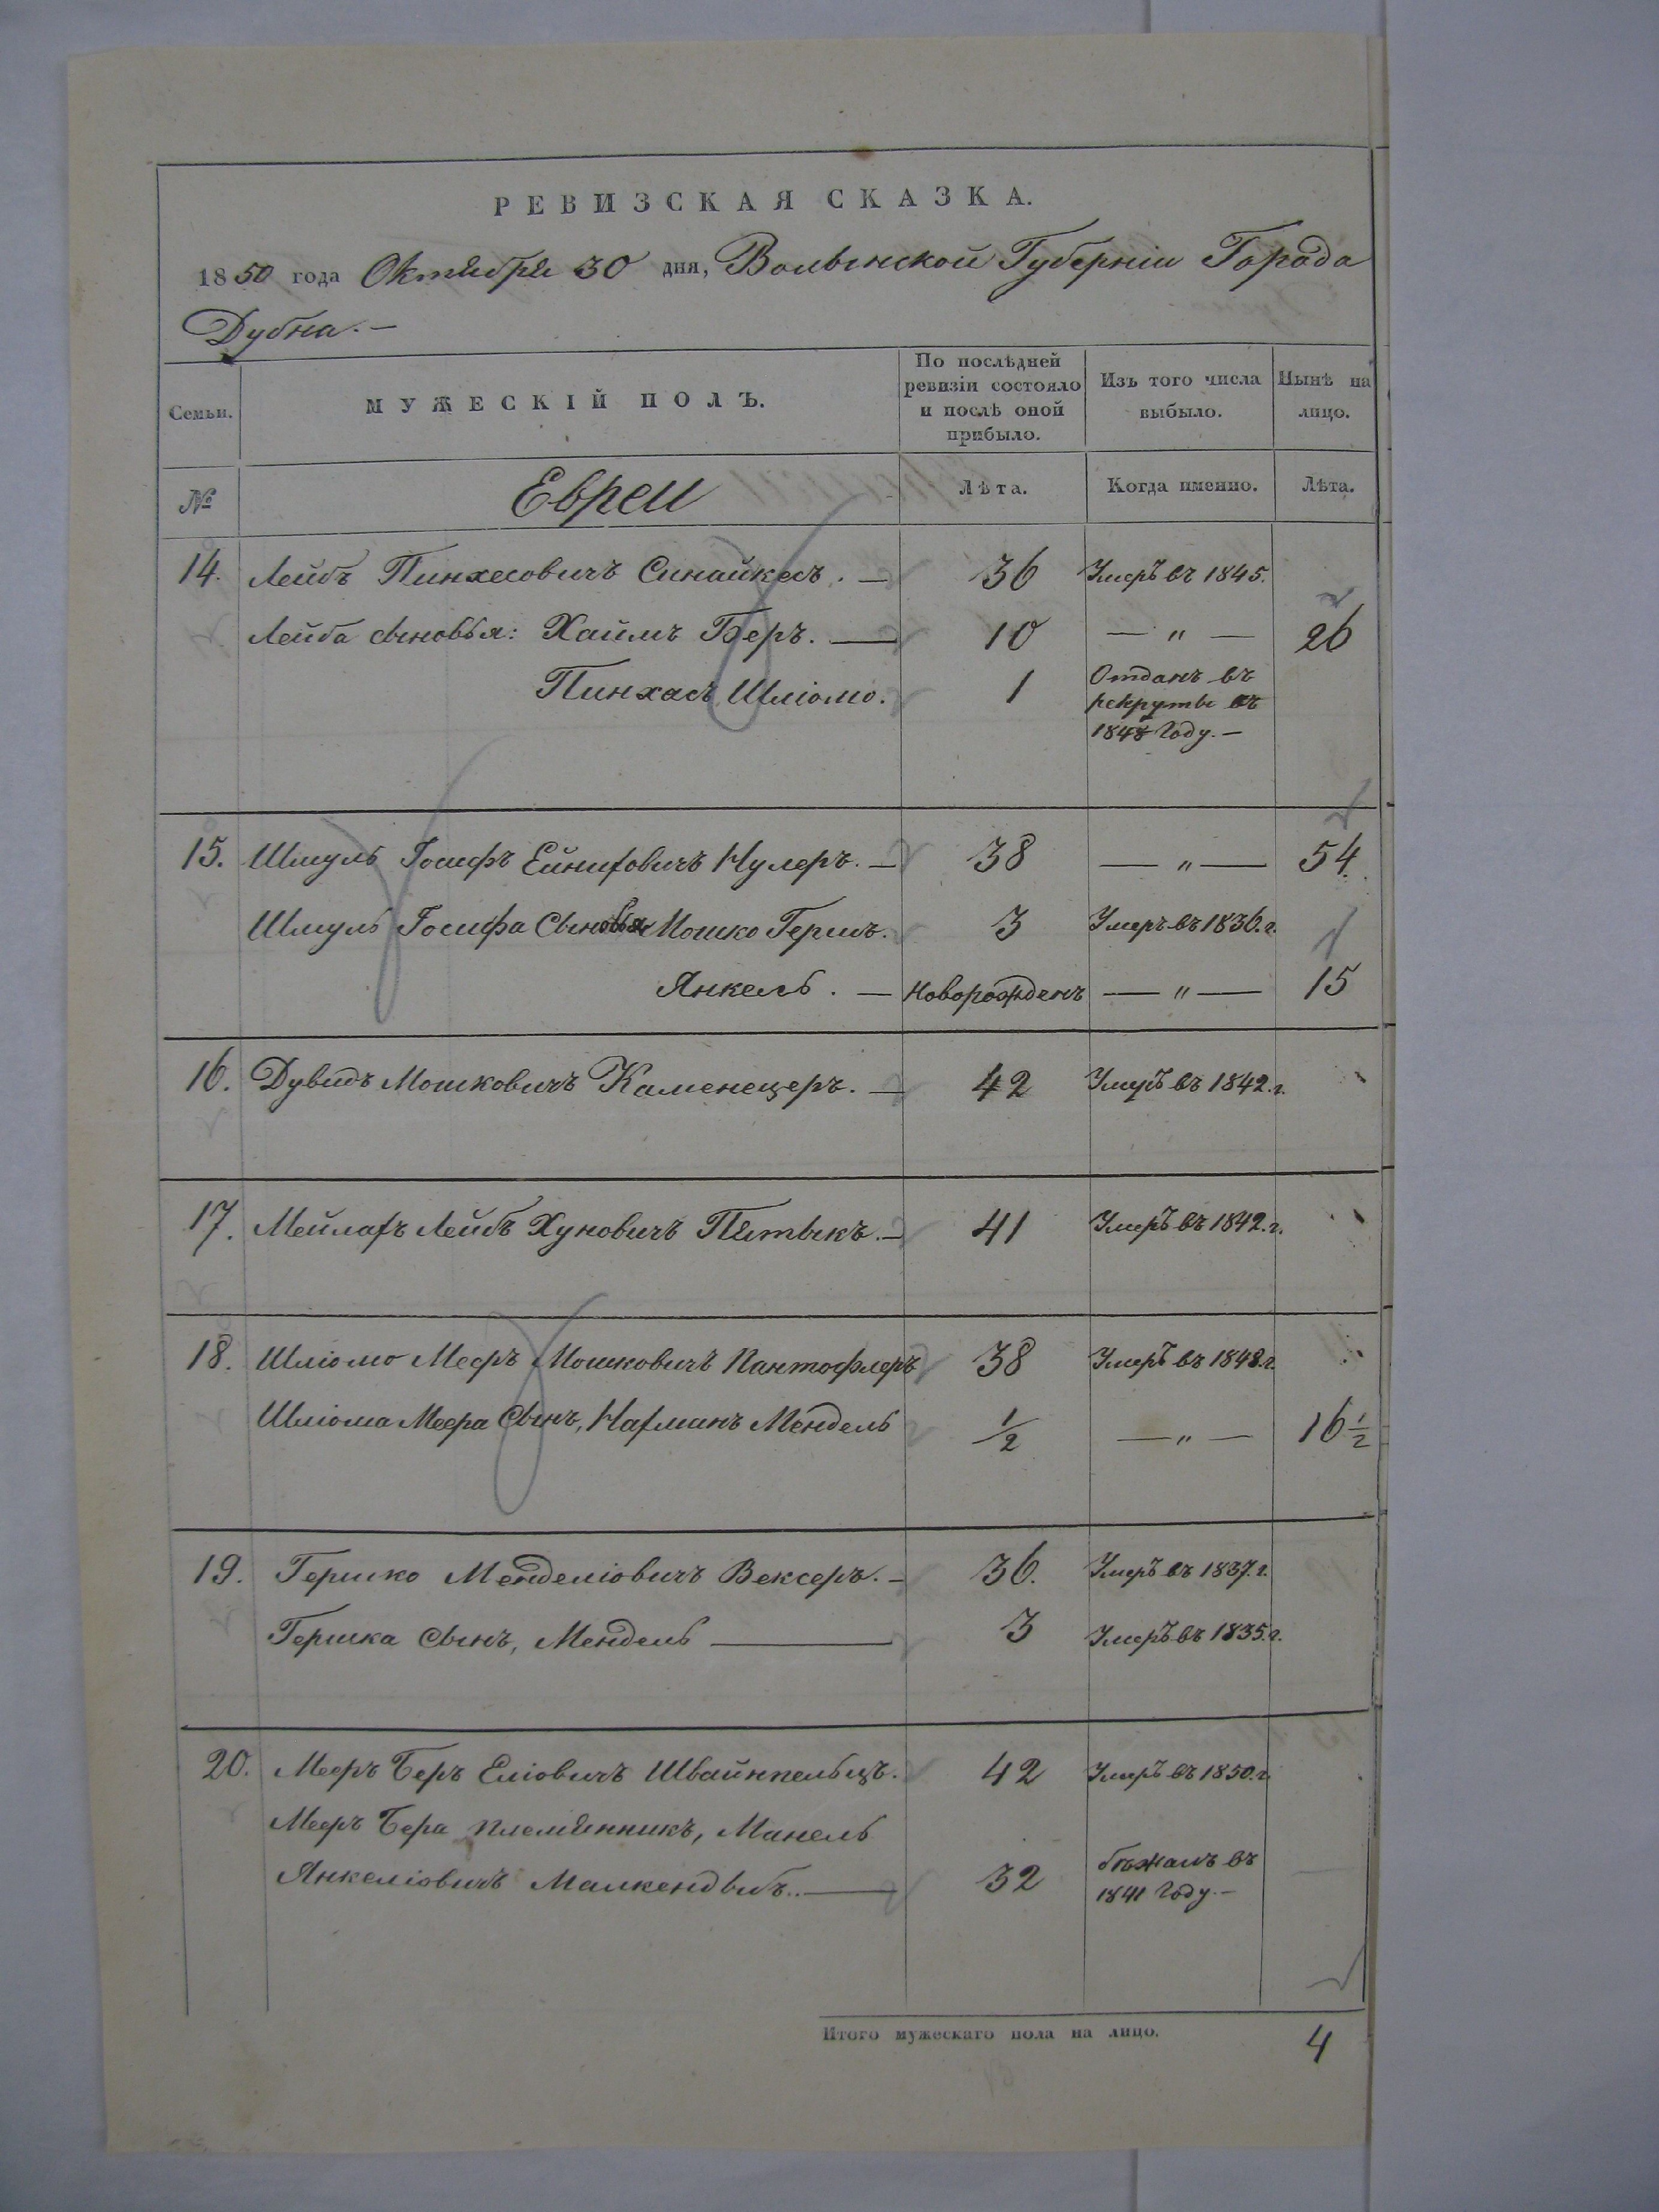 РЕВИЗСКАЯ СКАЗКА.
1850 года Октября 30 дня, Волынской Губерніи Города
Дубна. —
Семьи. МУЖЕСКІЙ ПОЛЪ. По послѣдней ревизіи состояло и послѣ оной прибыло. Изъ того числа выбыло. Нынѣ на лицо.
№ Евреи Лѣта. Когда именно. Лѣта.
14. Лейбъ Пинхесовичъ Синайкесъ. — 36 Умеръ въ 1845.
Лейба сыновья: Хаимъ Беръ. — 10 — " — 26
Пинхасъ Шліомо. 1 Отданъ въ
рекруты въ
1848 Году. —
15. Шмуль Іосифъ Ейниховичъ Нулеръ. — 38 — " — 54.
Шмуль Іосифа Сыновья Мошко Гершъ. 3 Умеръ въ 1836. г.
Янкель. — Новорожденъ — " — 15
16. Дувидъ Мошковичъ Каменецеръ. — 42 Умеръ въ 1842. г.
17. Мейлахъ Лейбъ Хуновичъ Пятыкъ. — 41 Умеръ въ 1842. г.
18. Шліомо Мееръ Мошковичъ Пантофлеръ 38 Умеръ въ 1848. г.
Шліома Меера Сынъ, Нахманъ Мендель 1/2 — " — 16 1/2
19. Гершко Менделіовичъ Вексеръ. — 36. Умеръ въ 1837. г.
Гершка Сынъ, Мендель — 3 Умеръ въ 1835. г.
20. Мееръ Беръ Еліовичъ Швайнпельцъ. 42 Умеръ въ 1850. г.
Мееръ Бера племянникъ, Манель
Янкеліовичъ — 32 бѣжалъ въ
1841 Году. —
Итого мужескаго пола на лицо. 4